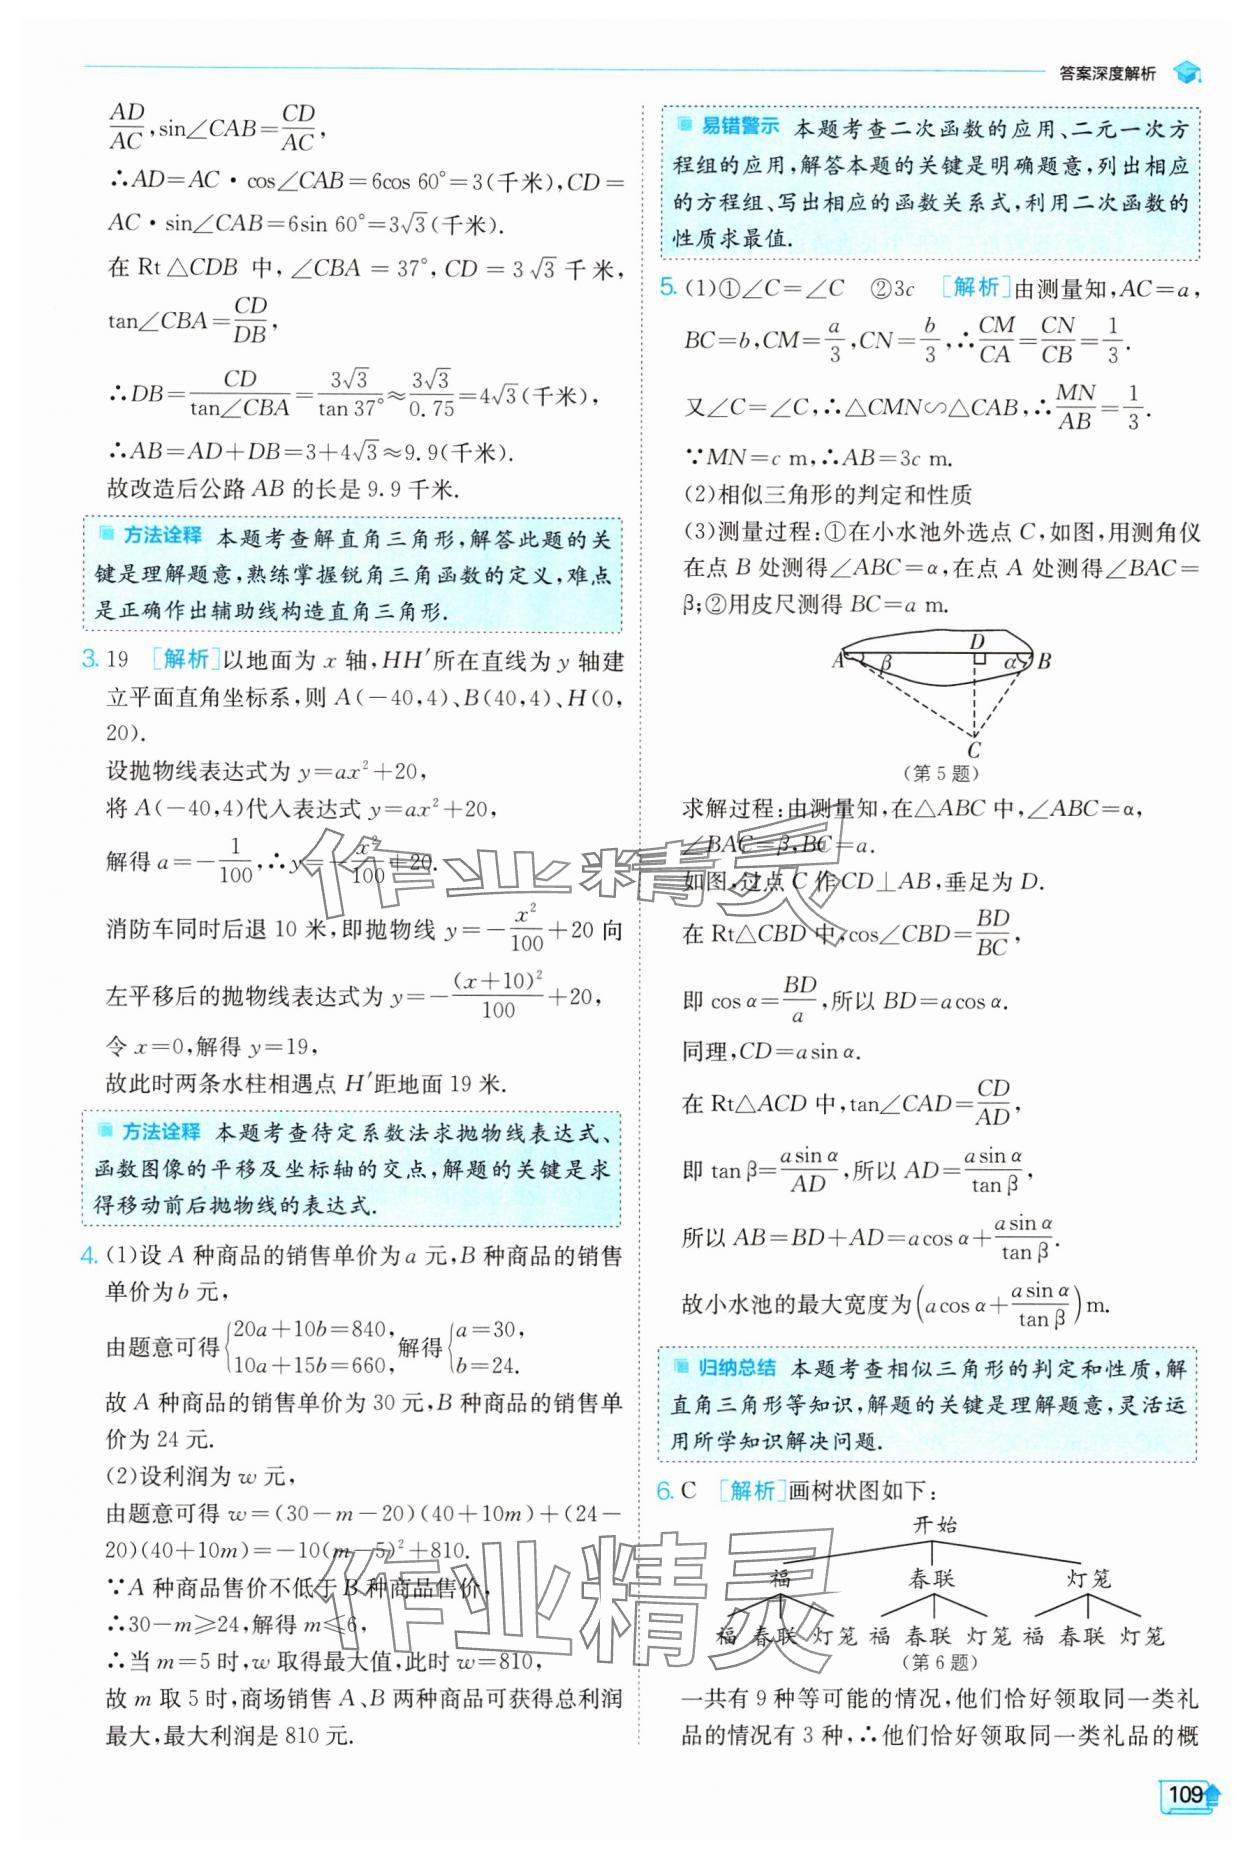 答案深度解析
AD/AC, sin∠CAB=CD/AC,
∴AD=AC·cos∠CAB=6cos 60°=3(千米),CD=
AC·sin∠CAB=6sin 60°=3√3(千米).
在 Rt△CDB 中,∠CBA=37°,CD=3√3千米,
tan∠CBA=CD/DB,
∴DB=CD/tan∠CBA=3√3/tan 37°≈3√3/0.75=4√3(千米),
∴AB=AD+DB=3+4√3≈9.9(千米).
故改造后公路 AB 的长是 9.9 千米.
方法诠释 本题考查解直角三角形,解答此题的关
键是理解题意,熟练掌握锐角三角函数的定义,难点
是正确作出辅助线构造直角三角形.
3. 19 [解析]以地面为 x 轴,HH′所在直线为 y 轴建
立平面直角坐标系,则 A(-40,4)、B(40,4)、H(0,
20).
设抛物线表达式为 y=ax²+20,
将 A(-40,4)代入表达式 y=ax²+20,
解得 a=-1/100,∴y=-x²/100+20.
消防车同时后退 10 米,即抛物线 y=-x²/100+20 向
左平移后的抛物线表达式为 y=-(x+10)²/100+20,
令 x=0,解得 y=19,
故此时两条水柱相遇点 H′距地面 19 米.
方法诠释 本题考查待定系数法求抛物线表达式、
函数图像的平移及坐标轴的交点,解题的关键是求
得移动前后抛物线的表达式.
4. (1)设 A 种商品的销售单价为 a 元,B 种商品的销售
单价为 b 元,
由题意可得{20a+10b=840, 10a+15b=660, 解得{a=30, b=24.
故 A 种商品的销售单价为 30 元,B 种商品的销售单
价为 24 元.
(2)设利润为 w 元,
由题意可得 w=(30-m-20)(40+10m)+(24-
20)(40+10m)=-10(m-5)²+810.
∵A 种商品售价不低于 B 种商品售价,
∴30-m≥24,解得 m≤6,
∴当 m=5 时,w 取得最大值,此时 w=810,
故 m 取 5 时,商场销售 A、B 两种商品可获得总利润
最大,最大利润是 810 元.
易错警示 本题考查二次函数的应用、二元一次方
程组的应用,解答本题的关键是明确题意,列出相应
的方程组、写出相应的函数关系式,利用二次函数的
性质求最值.
5. (1)①∠C=∠C ②3c [解析]由测量知,AC=a,
BC=b,CM=a/3,CN=b/3,∴CM/CA=CN/CB=1/3.
又∠C=∠C,∴△CMN∽△CAB,∴MN/AB=1/3.
∵MN=c m,∴AB=3c m.
(2)相似三角形的判定和性质
(3)测量过程:①在小水池外选点 C,如图,用测角仪
在点 B 处测得∠ABC=α,在点 A 处测得∠BAC=
β;②用皮尺测得 BC=a m.
D
A β α B
C
(第 5 题)
求解过程:由测量知,在△ABC 中,∠ABC=α,
∠BAC=β,BC=a.
如图,过点 C 作 CD⊥AB,垂足为 D.
在 Rt△CBD 中,cos∠CBD=BD/BC,
即 cos α=BD/a,所以 BD=acos α.
同理,CD=asin α.
在 Rt△ACD 中,tan∠CAD=CD/AD,
即 tan β=asin α/AD,所以 AD=asin α/tan β,
所以 AB=BD+AD=acos α+asin α/tan β.
故小水池的最大宽度为(acos α+asin α/tan β)m.
归纳总结 本题考查相似三角形的判定和性质,解
直角三角形等知识,解题的关键是理解题意,灵活运
用所学知识解决问题.
6. C [解析]画树状图如下:
开始
福 春联 灯笼
福 春联 灯笼 福 春联 灯笼 福 春联 灯笼
(第 6 题)
一共有 9 种等可能的情况,他们恰好领取同一类礼
品的情况有 3 种,∴他们恰好领取同一类礼品的概
109
作业精灵
作业精灵